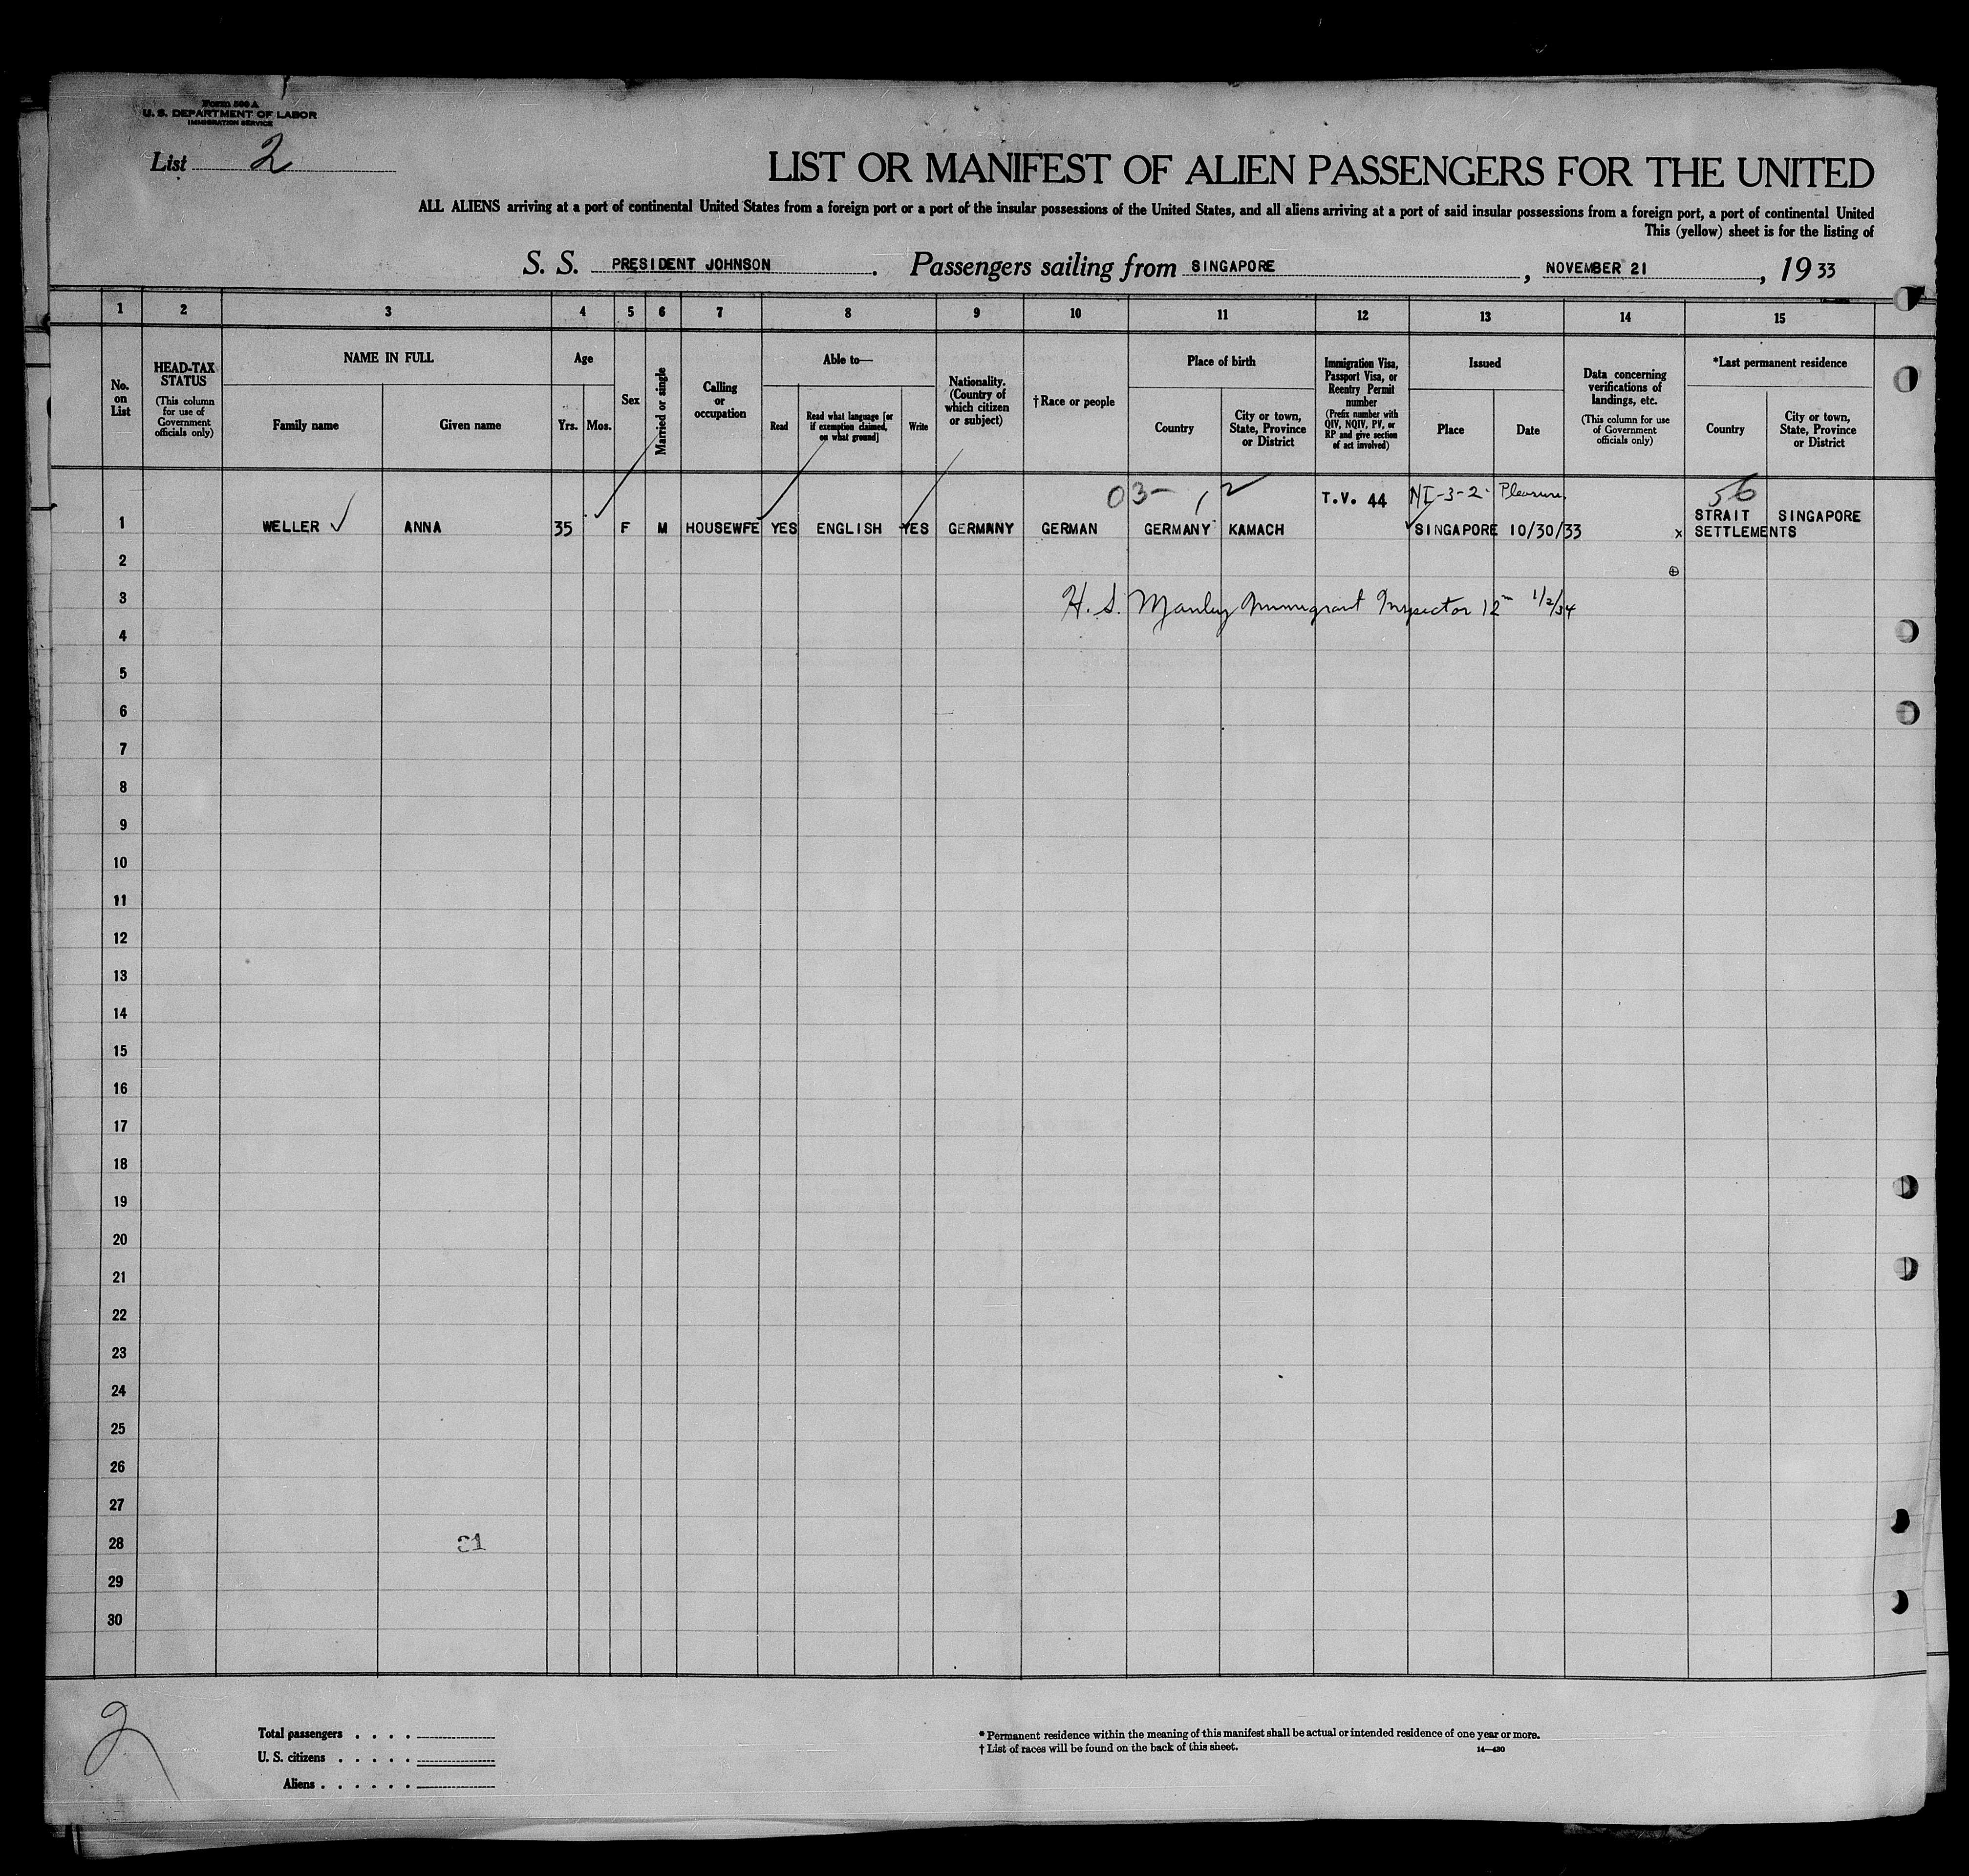 Form 500 A
U. S. DEPARTMENT OF LABOR
IMMIGRATION SERVICE
List 2
LIST OR MANIFEST OF ALIEN PASSENGERS FOR THE UNITED
ALL ALIENS arriving at a port of continental United States from a foreign port or a port of the insular possessions of the United States, and all aliens arriving at a port of said insular possessions from a foreign port, a port of continental United
This (yellow) sheet is for the listing of
S. S. PRESIDENT JOHNSON. Passengers sailing from SINGAPORE, NOVEMBER 21, 1933
1 2 3 4 5 6 7 8 9 10 11 12 13 14 15
No. on List
HEAD-TAX STATUS
(This column for use of Government officials only)
NAME IN FULL
Family name
Given name
Age
Yrs. Mos.
Sex
Married or single
Calling or occupation
Able to—
Read
Read what language [or if exemption claimed, on what ground]
Write
Nationality. (Country of which citizen or subject)
† Race or people
Place of birth
Country
City or town, State, Province or District
Immigration Visa, Passport Visa, or Reentry Permit number
(Prefix number with QIV, NQIV, PV, or RP and give section of act involved)
Issued
Place
Date
Data concerning verifications of landings, etc.
(This column for use of Government officials only)
*Last permanent residence
Country
City or town, State, Province or District
03- 12 T.V. 44 NI-3-2 Pleasure 56
1 WELLER ANNA 35 F M HOUSEWFE YES ENGLISH YES GERMANY GERMAN GERMANY KAMACH SINGAPORE 10/30/33 x STRAIT SETTLEMENTS SINGAPORE
2
3 H. S. Manley Immigrant Inspector 12m 1/2/34
4
5
6
7
8
9
10
11
12
13
14
15
16
17
18
19
20
21
22
23
24
25
26
27
28
29
30
2
Total passengers . . . .
U. S. citizens . . . . .
Aliens . . . . . .
* Permanent residence within the meaning of this manifest shall be actual or intended residence of one year or more.
† List of races will be found on the back of this sheet.
14—430